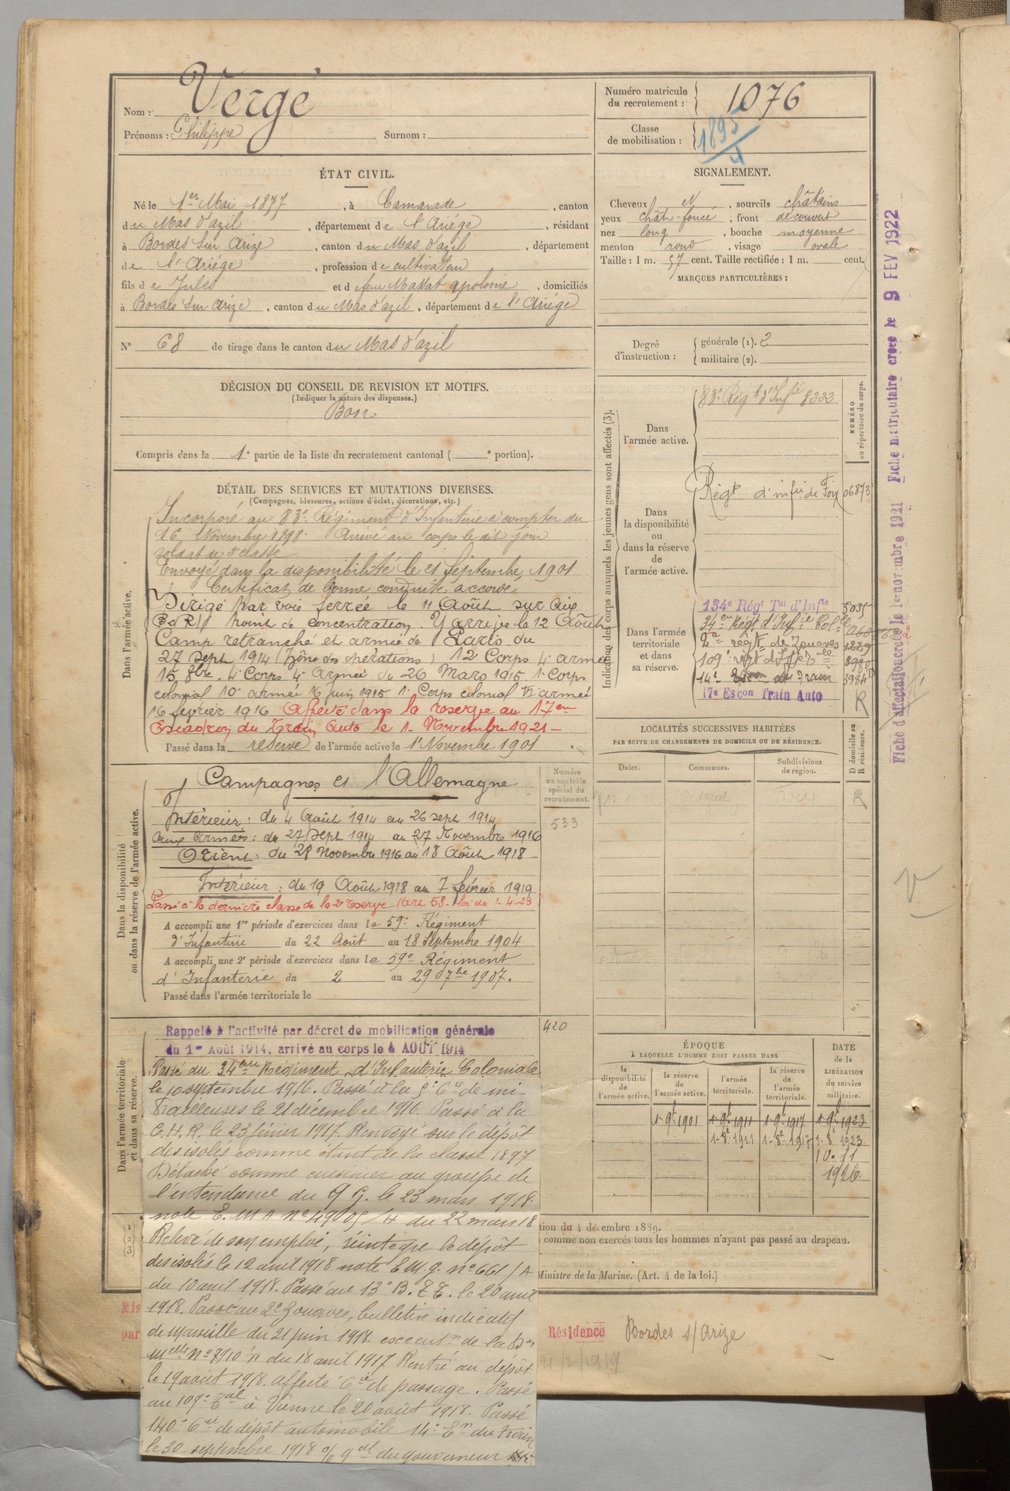 Nom : Vergé
Prénoms : Philippe Surnom :
Numéro matricule du recrutement : 1076
Classe de mobilisation : 1895
ÉTAT CIVIL.
Né le 1er Mai 1877, à Camarade, canton
du Mas d'azil, département de l'Ariége, résidant
à Bordes sur Arize, canton du Mas d'azil, département
de l'Ariége, profession de cultivateur
fils de Jules et de feue apolonie, domiciliés
à Bordes sur Arize, canton du Mas d'azil, département de l'Ariége
N° 68 de tirage dans le canton du Mas d'azil
SIGNALEMENT.
Cheveux N, sourcils châtains
yeux chât-foncé, front découvert
nez long, bouche moyenne
menton rond, visage ovale
Taille : 1 m. 57 cent. Taille rectifiée : 1 m. cent.
MARQUES PARTICULIÈRES :
Degré d'instruction : générale (1). 2
militaire (2).
DÉCISION DU CONSEIL DE REVISION ET MOTIFS.
(Indiquer la nature des dispenses.)
Bon
Compris dans la 1e partie de la liste du recrutement cantonal ( e portion).
DÉTAIL DES SERVICES ET MUTATIONS DIVERSES.
(Campagnes, blessures, actions d'éclat, décorations, etc.)
Dans l'armée active.
Incorporé au 83e Régiment d'Infanterie à compter du
16 Novembre 1898. Arrivé au corps le dit jour
soldat de 2e classe
Envoyé dans la disponibilité le 21 septembre 1901
Certificat de bonne conduite accordé
Dirigé par voie ferrée le 11 Août sur Aix
(B d R) point de concentration. Y arrive le 12 Août
Camp retranché et armée de Paris du
27 Sept 1914 (Zone des opérations) 12 Corps 4e armée
15 8bre. 4e Corps 4e Armée du 26 Mars 1915 1e Corps
colonial 10e armée 16 juin 1915 1e Corps colonial VI armée
16 février 1916 Affecté dans la reserve au 17em
Escadron du Train Auto le 1 Novembre 1921-
Passé dans la réserve de l'armée active le 1er Novembre 1901
Indication des corps auxquels les jeunes gens sont affectés (3).
Dans l'armée active.
83e Régt d'Infie 8333
NUMÉRO au répertoire du corps.
Dans la disponibilité ou dans la réserve de l'armée active.
Régt d'infie de Foix 06873
Dans l'armée territoriale et dans sa réserve.
134e Régt Tal d'Infie 5035
34e Régt d'Infie Cole
2e régt de Zouaves
109e régt
14e du Train
17e Escon Train Auto R
Dans la disponibilité ou dans la réserve de l'armée active.
Campagnes et l'Allemagne
Intérieur : du 4 Août 1914 au 26 sept 1914
aux armées : du 27 sept 1914 au 27 Novembre 1916
Orient : du 28 Novembre 1916 au 18 Août 1918
Intérieur : du 19 Août 1918 au 7 février 1919
Passé à la dernière classe de la 2e réserve (are 58. loi de 1.4.23)
A accompli une 1re période d'exercices dans le 59e Régiment
d'Infanterie du 22 Août au 18 Septembre 1904
A accompli une 2e période d'exercices dans le 59e Régiment
d'Infanterie du 2 au 29 7bre 1907.
Passé dans l'armée territoriale le
Numéro au contrôle spécial du recrutement.
533
420
LOCALITÉS SUCCESSIVES HABITÉES
PAR SUITE DE CHANGEMENTS DE DOMICILE OU DE RÉSIDENCE.
Dates. Communes. Subdivisions de région. D domicile ou R résidence.
R
Dans l'armée territoriale et dans sa réserve.
Rappelé à l'activité par décret de mobilisation générale
du 1er Août 1914, arrivé au corps le 4 AOUT 1914
Passé au 34ème Régiment d'Infanterie Coloniale
le 10 septembre 1916. Passé à la 5e Cie de mi-
trailleuses le 21 décembre 1916. Passé à la
C.H.R. le 23 février 1917. Renvoyé sur le dépôt
des isolés comme étant de la classe 1897
Détaché comme cuisinier au groupe de
l'intendance du Q G. le 23 mars 1918.
note E. M A N° 4900S/4 du 22 mars 18
Relevé de son emploi, réintegre le dépôt
des isolés le 12 avril 1918 note E.M.G. n° 661/A
du 10 avril 1918. Passé au 13e B.E.E. le 20 avril
1918. Passé au 2e Zouaves, bulletin indicatif
de Marseille du 21 juin 1918 de la
Melle N° 7910 du 18 avril 1917 Rentré au dépôt
le 19 août 1918. affecté Cie de passage. Passé
au 109e à Vienne le 20 août 1918. Passé
140e Cie de dépôt automobile 14e En du Train
le 30 septembre 1918 du gouverneur
ÉPOQUE
À LAQUELLE L'HOMME DOIT PASSER DANS
la disponibilité de l'armée active. la réserve de l'armée active. l'armée territoriale. la réserve de l'armée territoriale.
DATE de la LIBÉRATION du service militaire.
1-9e 1901 1-9e 1911 1-9e 1917 1-9e 1923
1-8e 1911 1-8e 1917 1-8e 1923
10-11
1926
tion du 4 décembre 1889.
comme non exercés tous les hommes n'ayant pas passé au drapeau.
Ministre de la Marine. (Art. 4 de la loi.)
Résidence Bordes s/Arize
Fiche d'affectation créée le 1er novembre 1921 Fiche matriculaire créée le 9 FEV 1922